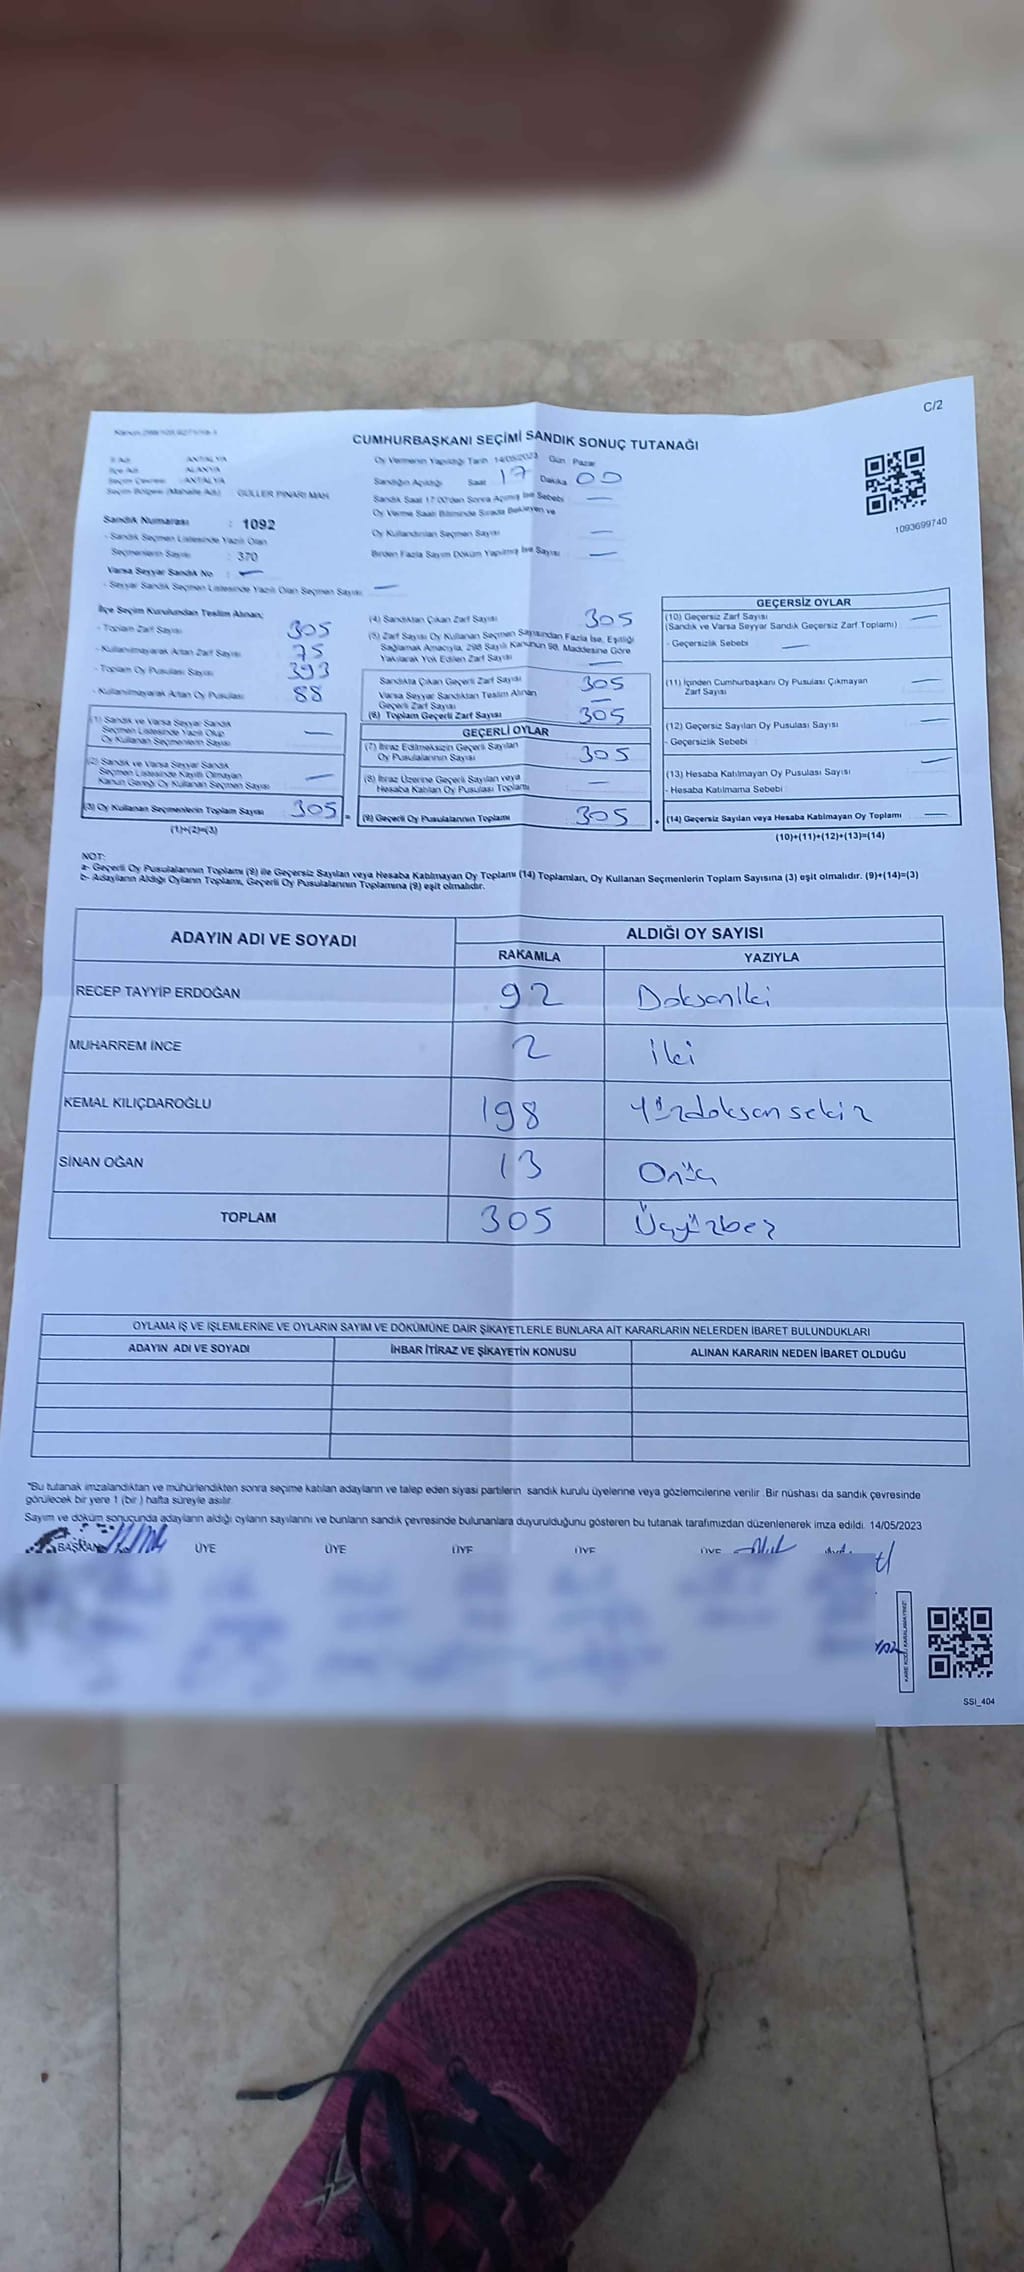 C/2
CUMHURBAŞKANI SEÇİMİ SANDIK SONUÇ TUTANAĞI
İl Adı : ANTALYA
İlçe Adı : ALANYA
Seçim Çevresi : ANTALYA
Seçim Bölgesi (Mahalle Adı) : GÜLLER PINARI MAH
Sandık Numarası : 1092
- Sandık Seçmen Listesinde Yazılı Olan
Seçmenlerin Sayısı : 370
Varsa Seyyar Sandık No : —
- Seyyar Sandık Seçmen Listesinde Yazılı Olan Seçmen Sayısı —
Oy Vermenin Yapıldığı Tarih 14/05/2023 Gün : Pazar
Sandığın Açıldığı Saat 17 Dakika 00
Sandık Saat 17:00'den Sonra Açılmış İse Sebebi —
Oy Verme Saati Bitiminde Sırada Bekleyen ve
Oy Kullandırılan Seçmen Sayısı —
Birden Fazla Sayım Döküm Yapılmış İse Sayısı —
1093699740
İlçe Seçim Kurulundan Teslim Alınan;
- Toplam Zarf Sayısı 305
- Kullanılmayarak Artan Zarf Sayısı 75
- Toplam Oy Pusulası Sayısı 393
- Kullanılmayarak Artan Oy Pusulası 88
(1) Sandık ve Varsa Seyyar Sandık
Seçmen Listesinde Yazılı Olup
Oy Kullanan Seçmenlerin Sayısı —
(2) Sandık ve Varsa Seyyar Sandık
Seçmen Listesinde Kayıtlı Olmayan
Kanun Gereği Oy Kullanan Seçmen Sayısı —
(3) Oy Kullanan Seçmenlerin Toplam Sayısı 305 =
(1)+(2)=(3)
(4) Sandıktan Çıkan Zarf Sayısı 305
(5) Zarf Sayısı Oy Kullanan Seçmen Sayısından Fazla İse, Eşitliği
Sağlamak Amacıyla, 298 Sayılı Kanunun 98. Maddesine Göre
Yakılarak Yok Edilen Zarf Sayısı —
Sandıkta Çıkan Geçerli Zarf Sayısı 305
Varsa Seyyar Sandıktan Teslim Alınan
Geçerli Zarf Sayısı —
(6) Toplam Geçerli Zarf Sayısı 305
GEÇERLİ OYLAR
(7) İtiraz Edilmeksizin Geçerli Sayılan
Oy Pusulalarının Sayısı 305
(8) İtiraz Üzerine Geçerli Sayılan veya
Hesaba Katılan Oy Pusulası Toplamı —
(9) Geçerli Oy Pusulalarının Toplamı 305 +
GEÇERSİZ OYLAR
(10) Geçersiz Zarf Sayısı —
(Sandık ve Varsa Seyyar Sandık Geçersiz Zarf Toplamı)
- Geçersizlik Sebebi —
(11) İçinden Cumhurbaşkanı Oy Pusulası Çıkmayan
Zarf Sayısı —
(12) Geçersiz Sayılan Oy Pusulası Sayısı —
- Geçersizlik Sebebi
(13) Hesaba Katılmayan Oy Pusulası Sayısı —
- Hesaba Katılmama Sebebi
(14) Geçersiz Sayılan veya Hesaba Katılmayan Oy Toplamı —
(10)+(11)+(12)+(13)=(14)
NOT:
a- Geçerli Oy Pusulalarının Toplamı (9) ile Geçersiz Sayılan veya Hesaba Katılmayan Oy Toplamı (14) Toplamları, Oy Kullanan Seçmenlerin Toplam Sayısına (3) eşit olmalıdır. (9)+(14)=(3)
b- Adayların Aldığı Oyların Toplamı, Geçerli Oy Pusulalarının Toplamına (9) eşit olmalıdır.
ADAYIN ADI VE SOYADI ALDIĞI OY SAYISI
RAKAMLA YAZIYLA
RECEP TAYYİP ERDOĞAN 92 Doksaniki
MUHARREM İNCE 2 iki
KEMAL KILIÇDAROĞLU 198 Yüzdoksansekiz
SİNAN OĞAN 13 Onüç
TOPLAM 305 Üçyüzbeş
OYLAMA İŞ VE İŞLEMLERİNE VE OYLARIN SAYIM VE DÖKÜMÜNE DAİR ŞİKAYETLERLE BUNLARA AİT KARARLARIN NELERDEN İBARET BULUNDUKLARI
ADAYIN ADI VE SOYADI İHBAR İTİRAZ VE ŞİKAYETİN KONUSU ALINAN KARARIN NEDEN İBARET OLDUĞU
"Bu tutanak imzalandıktan ve mühürlendikten sonra seçime katılan adayların ve talep eden siyasi partilerin sandık kurulu üyelerine veya gözlemcilerine verilir. Bir nüshası da sandık çevresinde
görülecek bir yere 1 (bir) hafta süreyle asılır.
Sayım ve döküm sonucunda adayların aldığı oyların sayılarını ve bunların sandık çevresinde bulunanlara duyurulduğunu gösteren bu tutanak tarafımızdan düzenlenerek imza edildi. 14/05/2023
BAŞKAN ÜYE ÜYE ÜYE ÜYE ÜYE
SSI_404